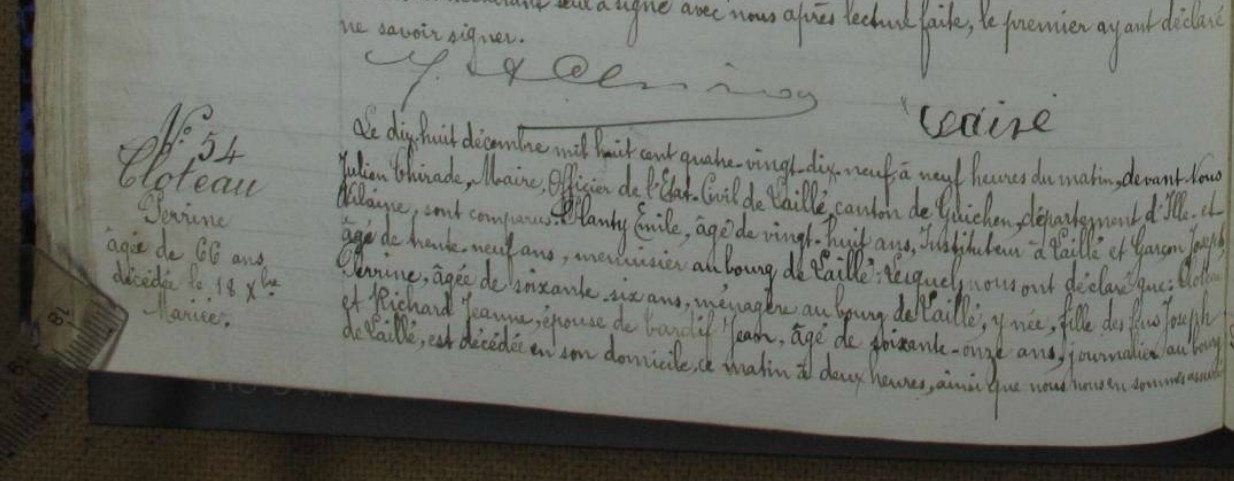 seul a signé avec nous après lecture faite, le premier ayant déclaré
ne savoir signer.
N° 54
Cloteau
Perrine
âgée de 66 ans
décédée le 18 Xbre
Mariée.
Le dix-huit décembre mil huit cent quatre-vingt-dix-neuf, à neuf heures du matin, devant Nous
Julien Thirade, Maire, Officier de l'Etat-Civil de Laillé, canton de Guichen, département d'Ille-et
Vilaine, sont comparus: Planty Emile, âgé de vingt-huit ans, Instituteur à Laillé et Garçon Joseph,
âgé de trente-neuf ans, menuisier au bourg de Laillé; lesquels nous ont déclaré que: Cloteau
Perrine, âgée de soixante-six ans, ménagère au bourg de Laillé, y née, fille des feus Joseph
et Richard Jeanne, épouse de Jean, âgé de soixante-onze ans, journalier au bourg
de Laillé, est décédée en son domicile, ce matin à deux heures, ainsi que nous nous en sommes assuré